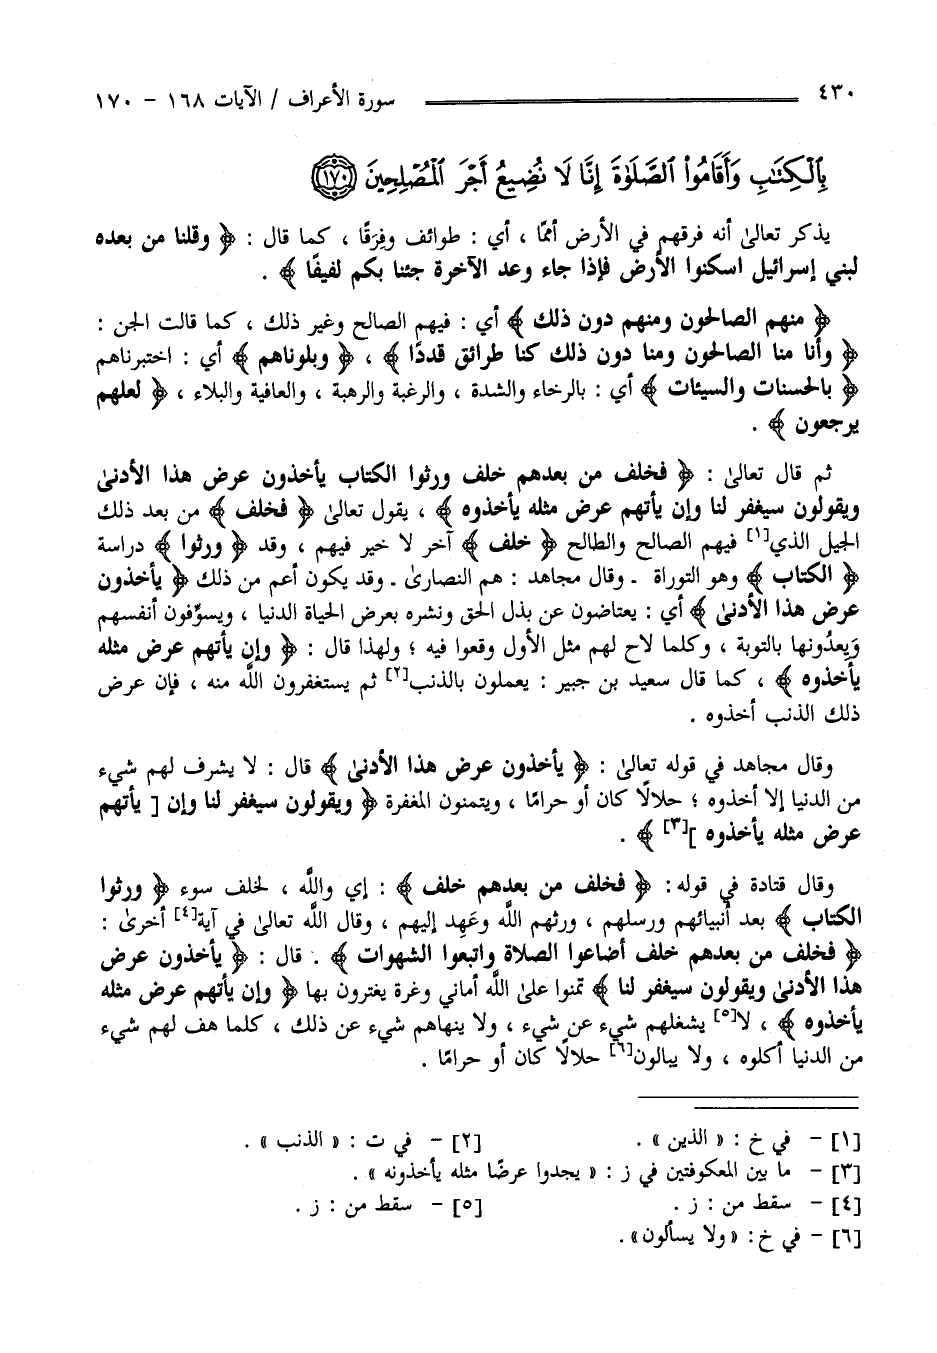 ٤٣٠ سورة الأعراف / الآيات ١٦٨ – ١٧٠
بِٱلْكِتَٰبِ وَأَقَامُوا۟ ٱلصَّلَوٰةَ إِنَّا لَا نُضِيعُ أَجْرَ ٱلْمُصْلِحِينَ ١٧٠
يذكر تعالىٰ أنه فرقهم في الأرض أممًا ، أي : طوائف وفِرَقًا ، كما قال : ﴿ وقلنا من بعده
لبني إسرائيل اسكنوا الأرض فإذا جاء وعد الآخرة جئنا بكم لفيفًا ﴾ .
﴿ منهم الصالحون ومنهم دون ذلك ﴾ أي : فيهم الصالح وغير ذلك ، كما قالت الجن :
﴿ وأنا منا الصالحون ومنا دون ذلك كنا طرائق قددًا ﴾ ، ﴿ وبلوناهم ﴾ أي : اختبرناهم
﴿ بالحسنات والسيئات ﴾ أي : بالرخاء والشدة ، والرغبة والرهبة ، والعافية والبلاء ، ﴿ لعلهم
يرجعون ﴾ .
ثم قال تعالىٰ : ﴿ فخلف من بعدهم خلف ورثوا الكتاب يأخذون عرض هذا الأدنىٰ
ويقولون سيغفر لنا وإن يأتهم عرض مثله يأخذوه ﴾ ، يقول تعالىٰ ﴿ فخلف ﴾ من بعد ذلك
الجيل الذي[١] فيهم الصالح والطالح ﴿ خلف ﴾ آخر لا خير فيهم ، وقد ﴿ ورثوا ﴾ دراسة
﴿ الكتاب ﴾ وهو التوراة ـ وقال مجاهد : هم النصارىٰ ـ وقد يكون أعم من ذلك ﴿ يأخذون
عرض هذا الأدنىٰ ﴾ أي : يعتاضون عن بذل الحق ونشره بعرض الحياة الدنيا ، ويسوِّفون أنفسهم
وَيعدُونها بالتوبة ، وكلما لاح لهم مثل الأول وقعوا فيه ؛ ولهذا قال : ﴿ وإن يأتهم عرض مثله
يأخذوه ﴾ ، كما قال سعيد بن جبير : يعملون بالذنب[٢] ثم يستغفرون اللَّه منه ، فإن عرض
ذلك الذنب أخذوه .
وقال مجاهد في قوله تعالىٰ : ﴿ يأخذون عرض هذا الأدنىٰ ﴾ قال : لا يشرف لهم شيء
من الدنيا إلا أخذوه ؛ حلالًا كان أو حرامًا ، ويتمنون المغفرة ﴿ ويقولون سيغفر لنا وإن [ يأتهم
عرض مثله يأخذوه ][٣] ﴾ .
وقال قتادة في قوله: ﴿ فخلف من بعدهم خلف ﴾ : إي واللَّه ، لخلف سوء ﴿ ورثوا
الكتاب ﴾ بعد أنبيائهم ورسلهم ، ورثهم اللَّه وعَهِد إليهم ، وقال اللَّه تعالىٰ في آية[٤] أخرىٰ :
﴿ فخلف من بعدهم خلف أضاعوا الصلاة واتبعوا الشهوات ﴾ . قال : ﴿ يأخذون عرض
هذا الأدنىٰ ويقولون سيغفر لنا ﴾ تمنوا علىٰ اللَّه أماني وغرة يغترون بها ﴿ وإن يأتهم عرض مثله
يأخذوه ﴾ ، لا[٥] يشغلهم شيء عن شيء ، ولا ينهاهم شيء عن ذلك ، كلما هف لهم شيء
من الدنيا أكلوه ، ولا يبالون[٦] حلالًا كان أو حرامًا .
[١] – في خ : « الذين » . [٢] – في ت : « الذنب » .
[٣] – ما بين المعكوفتين في ز : « يجدوا عرضًا مثله يأخذونه » .
[٤] – سقط من : ز . [٥] – سقط من : ز .
[٦] – في خ: «ولا يسألون» .